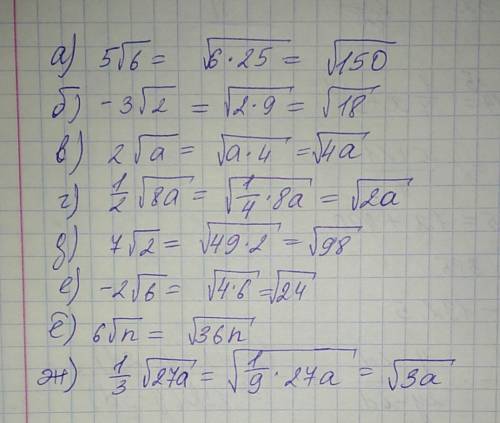 а) 5√6 = √6·25 = √150
б) -3√2 = √2·9 = √18
в) 2√a = √a·4 = √4a
г) 1/2 √8a = √1/4·8a = √2a
д) 7√2 = √49·2 = √98
е) -2√6 = √4·6 = √24
ё) 6√n = √36n
ж) 1/3 √27a = √1/9·27a = √3a